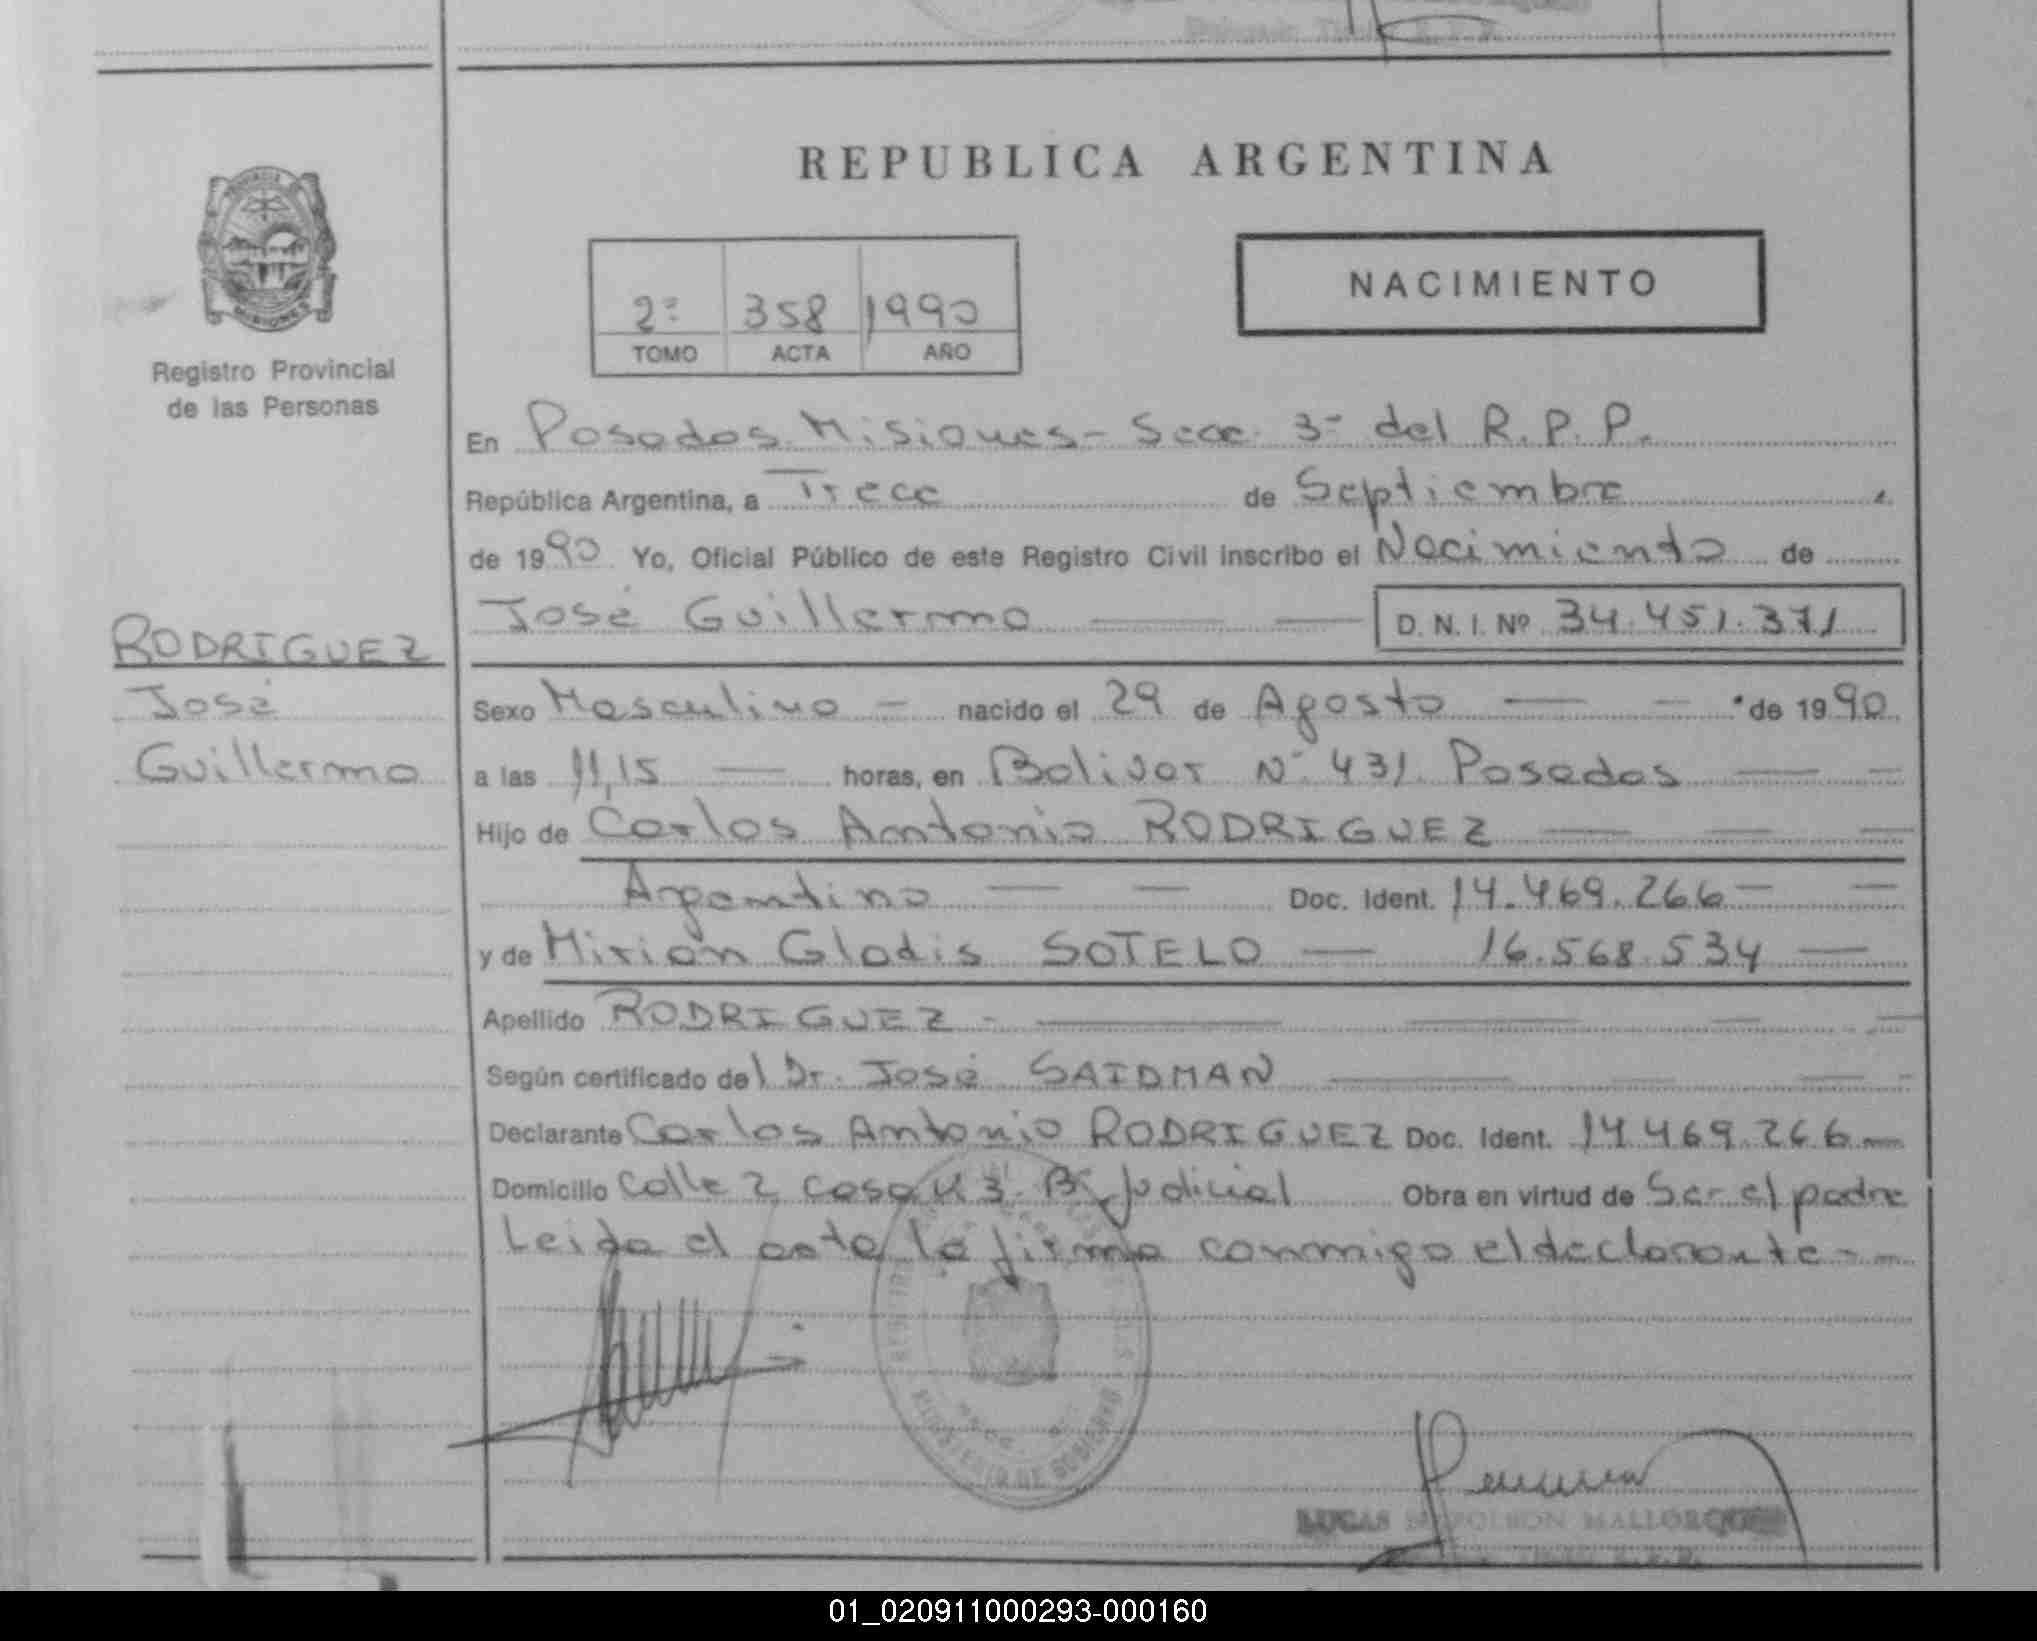 REPUBLICA ARGENTINA
MISIONES
Registro Provincial
de las Personas
2º 358 1990
TOMO ACTA AÑO
NACIMIENTO
En Posadas Misiones - Secc. 3ª del R.P.P.
República Argentina, a Trece de Septiembre
de 1990 Yo, Oficial Público de este Registro Civil inscribo el Nacimiento de
José Guillermo D.N.I. Nº 34.451.371
RODRIGUEZ
José
Guillermo
Sexo Masculino - nacido el 29 de Agosto de 1990
a las 11,15 horas, en Bolivar Nº 431 Posadas
Hijo de Carlos Antonio RODRIGUEZ
Argentino Doc. Ident. 14.469.266
y de Mirian Gladis SOTELO 16.568.534
Apellido RODRIGUEZ
Según certificado del Dr. José SAIDMAN
Declarante Carlos Antonio RODRIGUEZ Doc. Ident. 14.469.266
Domicilio Calle 2 casa 3 Bº Judicial Obra en virtud de Ser el padre
Leída el acta la firma conmigo el declarante
MINISTERIO DE GOBIERNO
LUCAS NAPOLEON
01_020911000293-000160